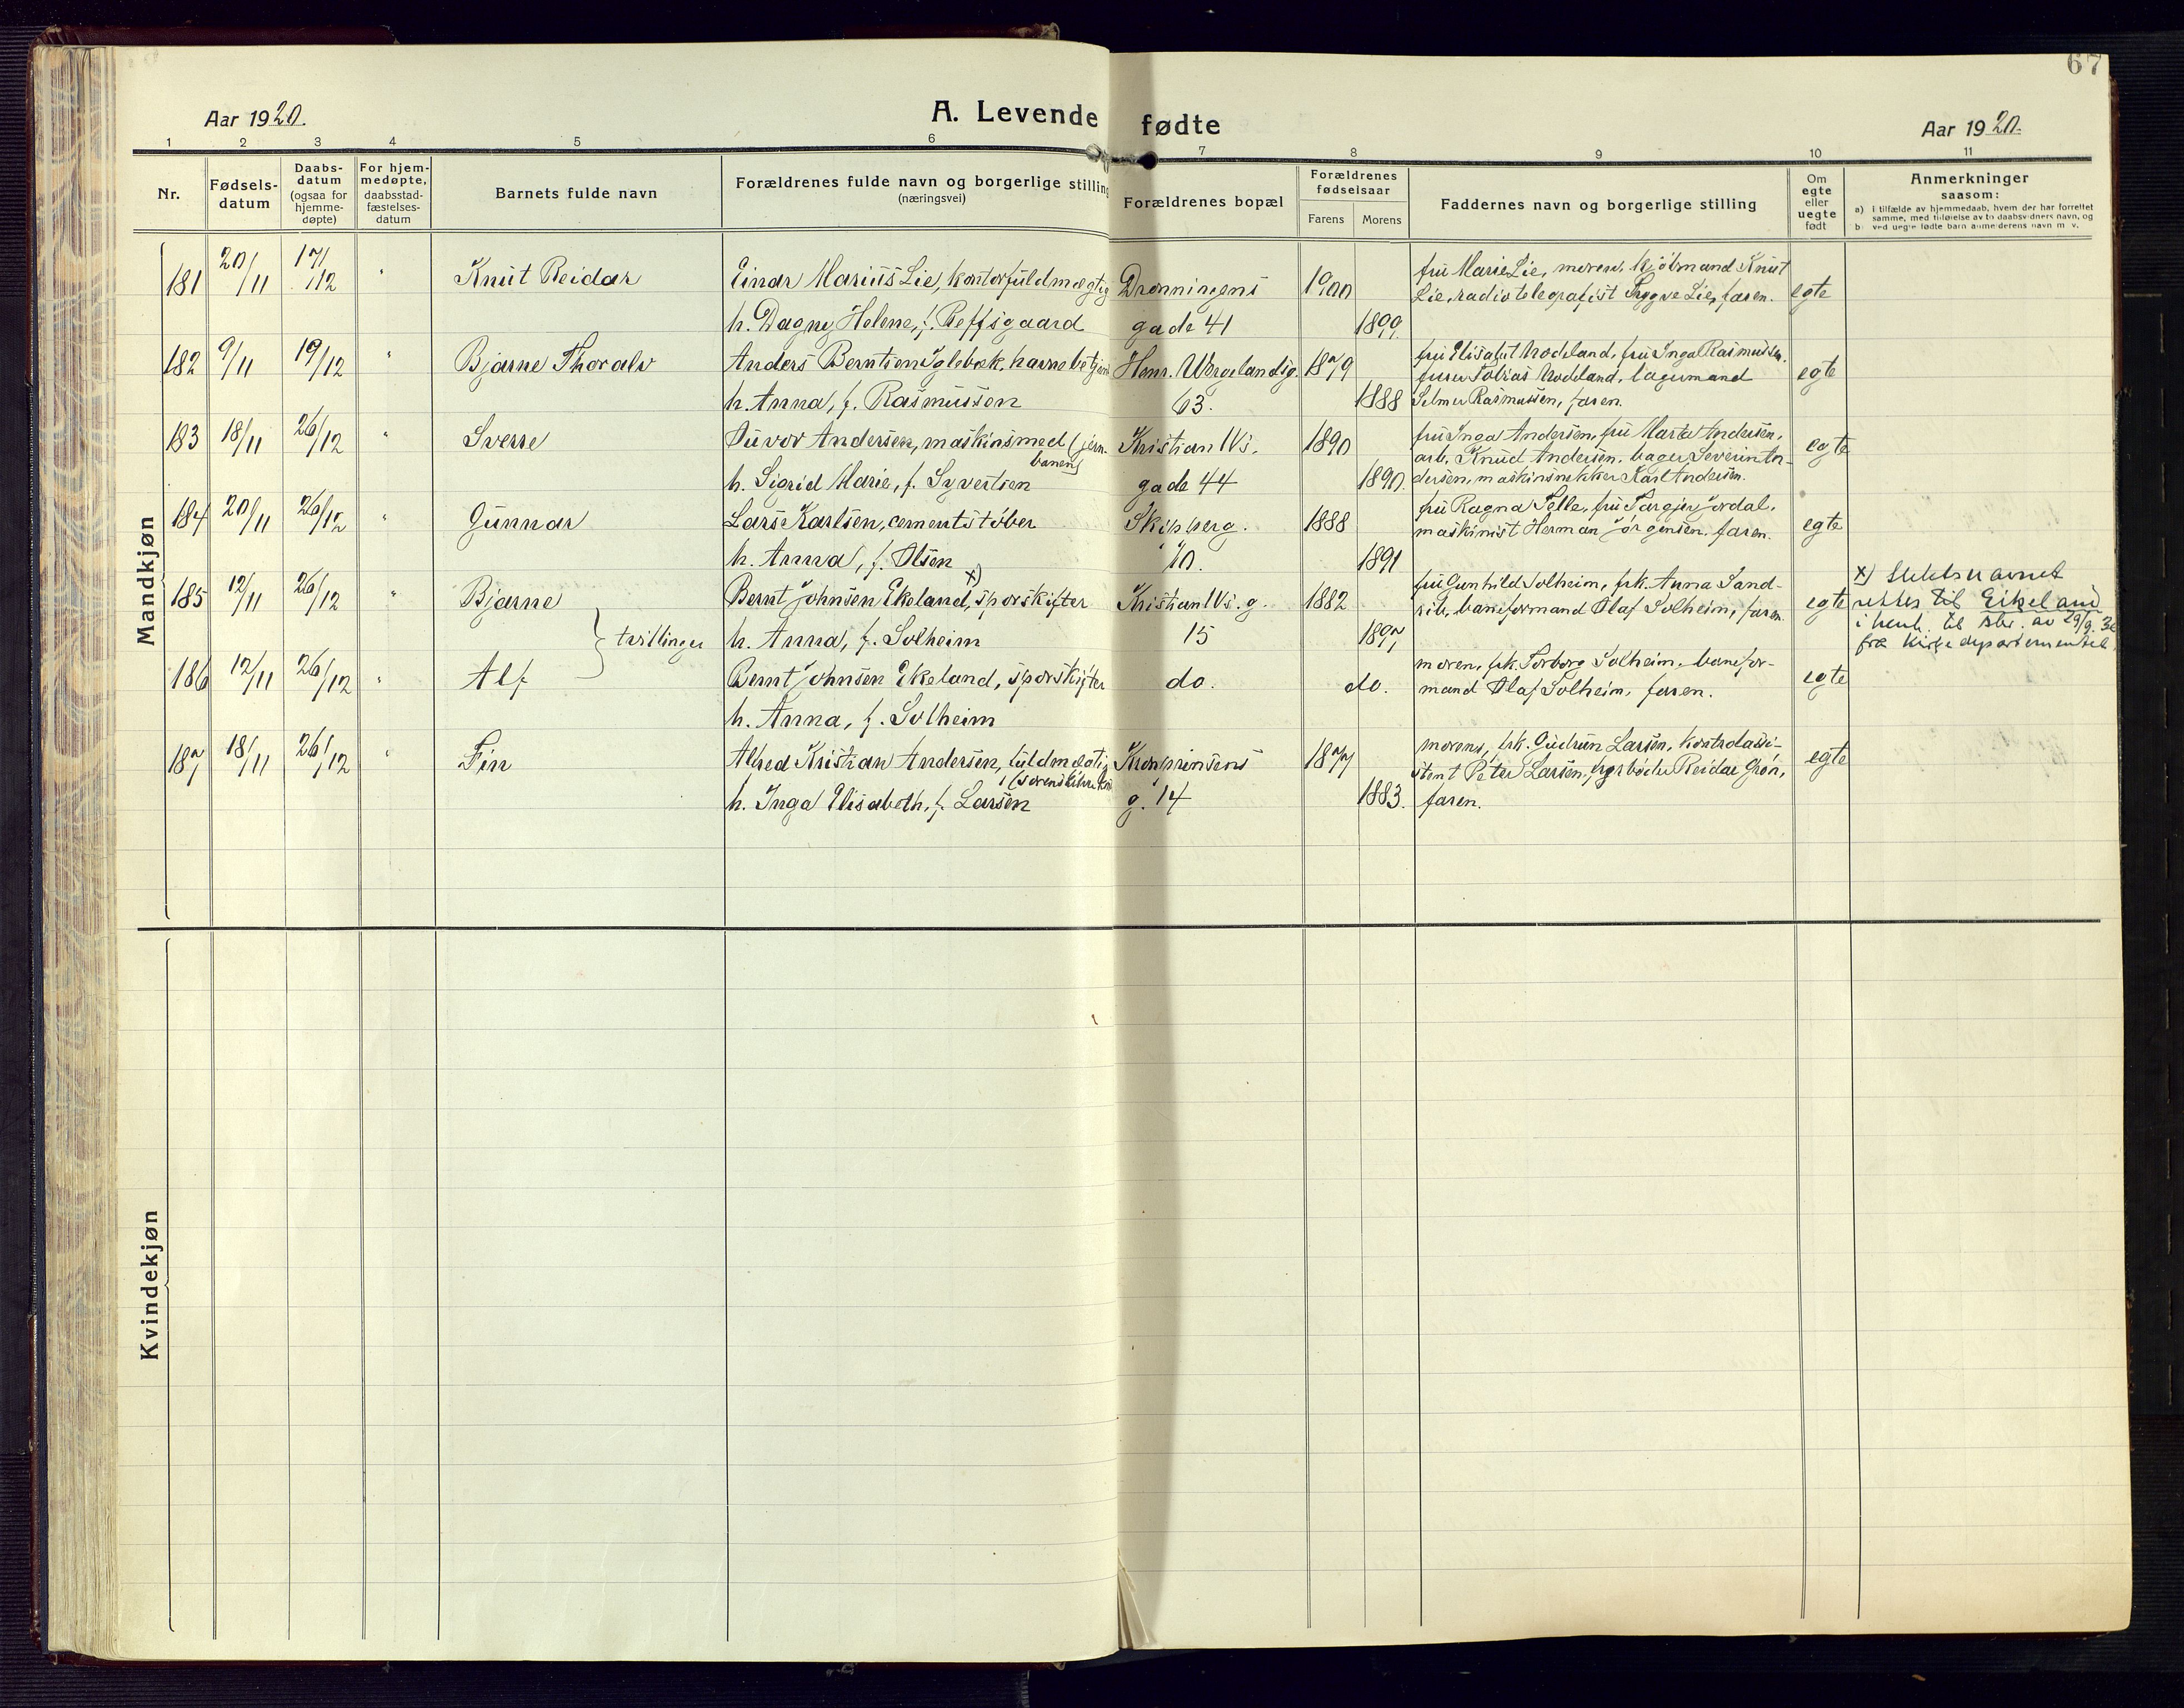 67
Aar 1920.
A. Levende fødte
Aar 1920.
1 2 3 4 5 6 7 8 9 10 11
Nr.
Fødsels-
datum
Daabs-
datum
(ogsaa for
hjemme-
døpte)
For hjem-
medøpte,
daabsstad-
fæstelses-
datum
Barnets fulde navn
Forældrenes fulde navn og borgerlige stilling
(næringsvei)
Forældrenes bopæl
Forældrenes
fødselsaar
Farens Morens
Faddernes navn og borgerlige stilling
Om
egte
eller
uegte
født
Anmerkninger
saasom:
a) i tilfælde av hjemmedaab, hvem der har forrettet
samme, med tilføielse av to daabsvidners navn, og
b) ved uegte fødte barn anmelderens navn m. v.
Mandkjøn
181 20/11 17/12 " Knut Reidar Einar Marius Lie, kontorfuldmægtig Dronningens 1900 fru Marie Lie, moren, kjøbmand Knut
Lie, radiotelegrafist Trygve Lie, faren. egte
h. Dagny Helene, f. Reffsgaard gade 41 1899.
182 9/11 19/12 " Bjarne Thoralv Anders Berntsen Iglebæk, havnebetjent Henr. Wergelandsg. 1879 fru Elisabet Modeland, fru Inga Rasmussen,
furer Tobias Modeland, lagermand egte
h. Anna, f. Rasmussen 63. 1888 Selmer Rasmussen, faren.
183 18/11 26/12 " Sverre Andersen, maskinsmed (jern-
banen) Kristian IVs. 1890 fru Inga Andersen, fru Marta Andersen,
arb. Knud Andersen, bager Severin An- egte
h. Sigrid Marie, f. Syvertsen gade 44 1890. dersen, maskinsnekker Karl Andersen.
184 20/11 26/12 " Gunnar Lars Karlsen, cementstøber Skipperg. 1888 fru Ragna Selle, fru Targjer Jordal,
maskinist Herman Jørgensen, faren. egte
h. Anna, f. Olsen 10. 1891
185 12/11 26/12 " Bjarne Bernt Johnsen Ekeland, x) sporskifter Kristian IVs. g. 1882 fru Gunhild Solheim, frk. Anna Sand-
rib, baneformand Olaf Solheim, faren. egte
h. Anna, f. Solheim 15 1897
x) Slektsnavnet
rettes til Eikeland
i henh. til skr. av 29/9. 36
fra Kirkedepartementet.
tvillinger
186 12/11 26/12 " Alf Bernt Johnsen Ekeland, sporskifter do. do. moren, frk. Torborg Solheim, banefor-
mand Olaf Solheim, faren. egte
h. Anna, f. Solheim
187 18/11 26/12 " Fin Alfred Kristian Andersen, fuldmægtig Kronprinsens 1877 moren, frk. Gudrun Larsen, kontorassi-
stent Peter Larsen, Reidar Grøn, egte
h. Inga Elisabeth, f. Larsen g. 14 1883. faren.
Kvindekjøn